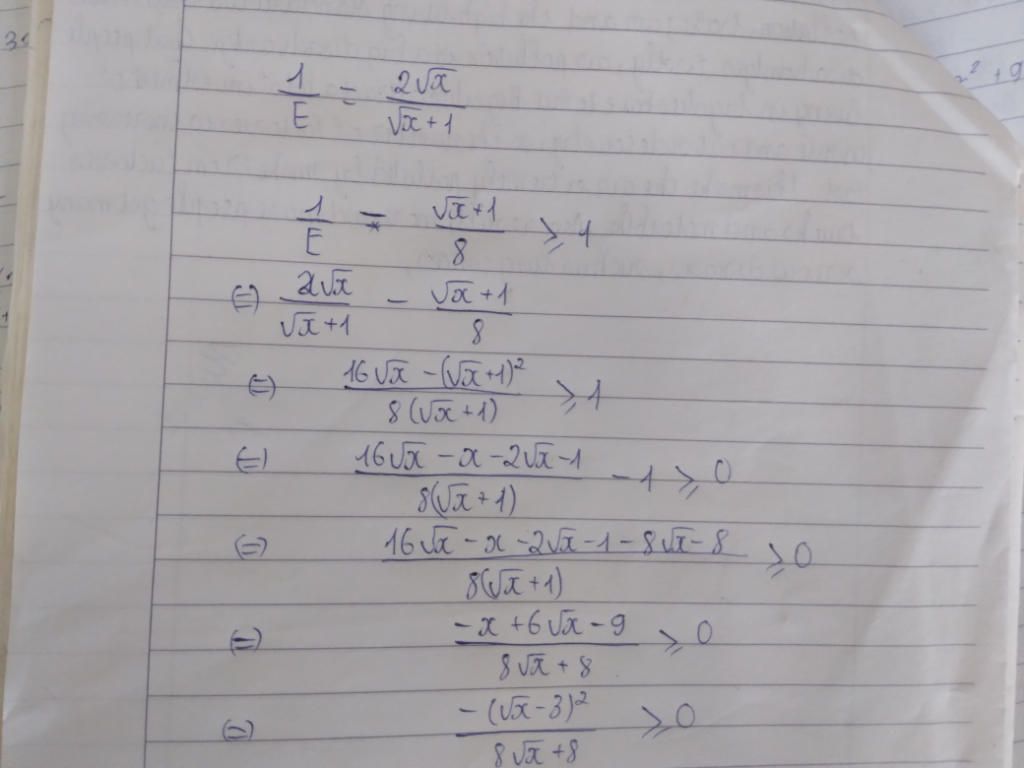 3.
1/E = 2√x/(√x+1)
x² + 9
1/E = (√x+1)/8 ⩾ 1
(=) 2√x/(√x+1) - (√x+1)/8
(=) (16√x - (√x+1)²)/(8(√x+1)) ⩾ 1
(=) (16√x - x - 2√x - 1)/(8(√x+1)) - 1 ⩾ 0
(=) (16√x - x - 2√x - 1 - 8√x - 8)/(8(√x+1)) ⩾ 0
(=) (-x + 6√x - 9)/(8√x + 8) ⩾ 0
(=) (-(√x-3)²)/(8√x+8) ⩾ 0